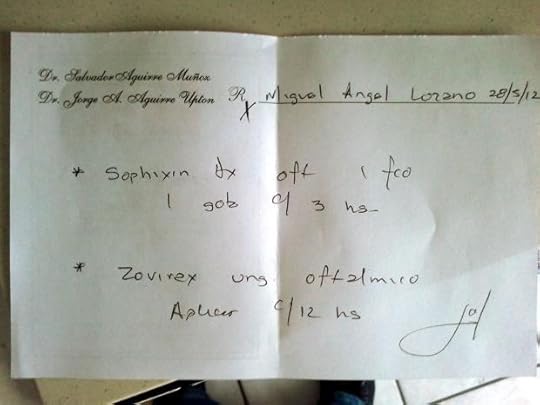 Dr. Salvador Aguirre Muñoz
Dr. Jorge A. Aguirre Upton
Rx Miguel Angel Lozano 28/5/12
* Sophixin dx oft 1 fco
1 gota c/ 3 hs
* Zovirex ung oftalmico
Aplicar c/12 hs